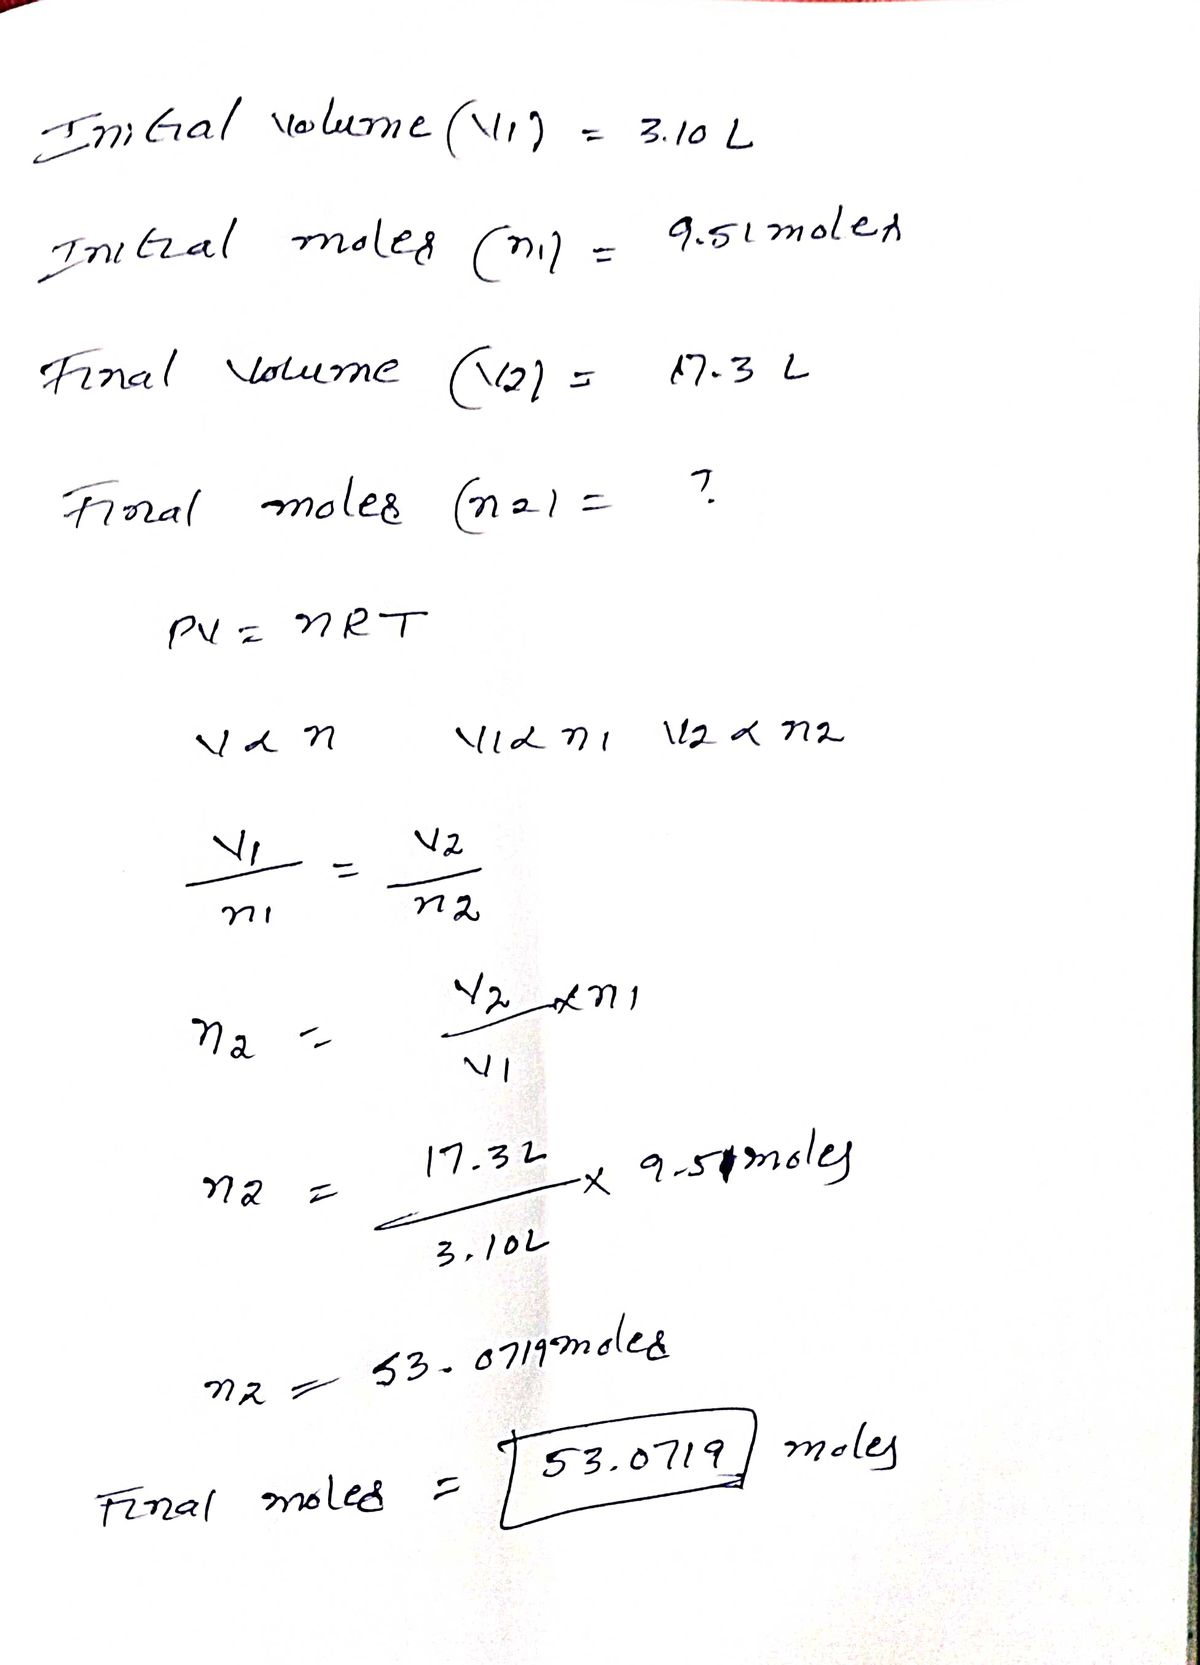 Initial volume (V1) = 3.10 L
Initial moles (n1) = 9.51 moles
Final Volume (V2) = 17.3 L
Final moles (n2) = ?
PV = nRT
V α n V1 α n1 V2 α n2
V1/n1 = V2/n2
n2 = V2/V1 × n1
n2 = 17.3L/3.10L × 9.51 moles
n2 = 53.0719 moles
Final moles = 53.0719 moles